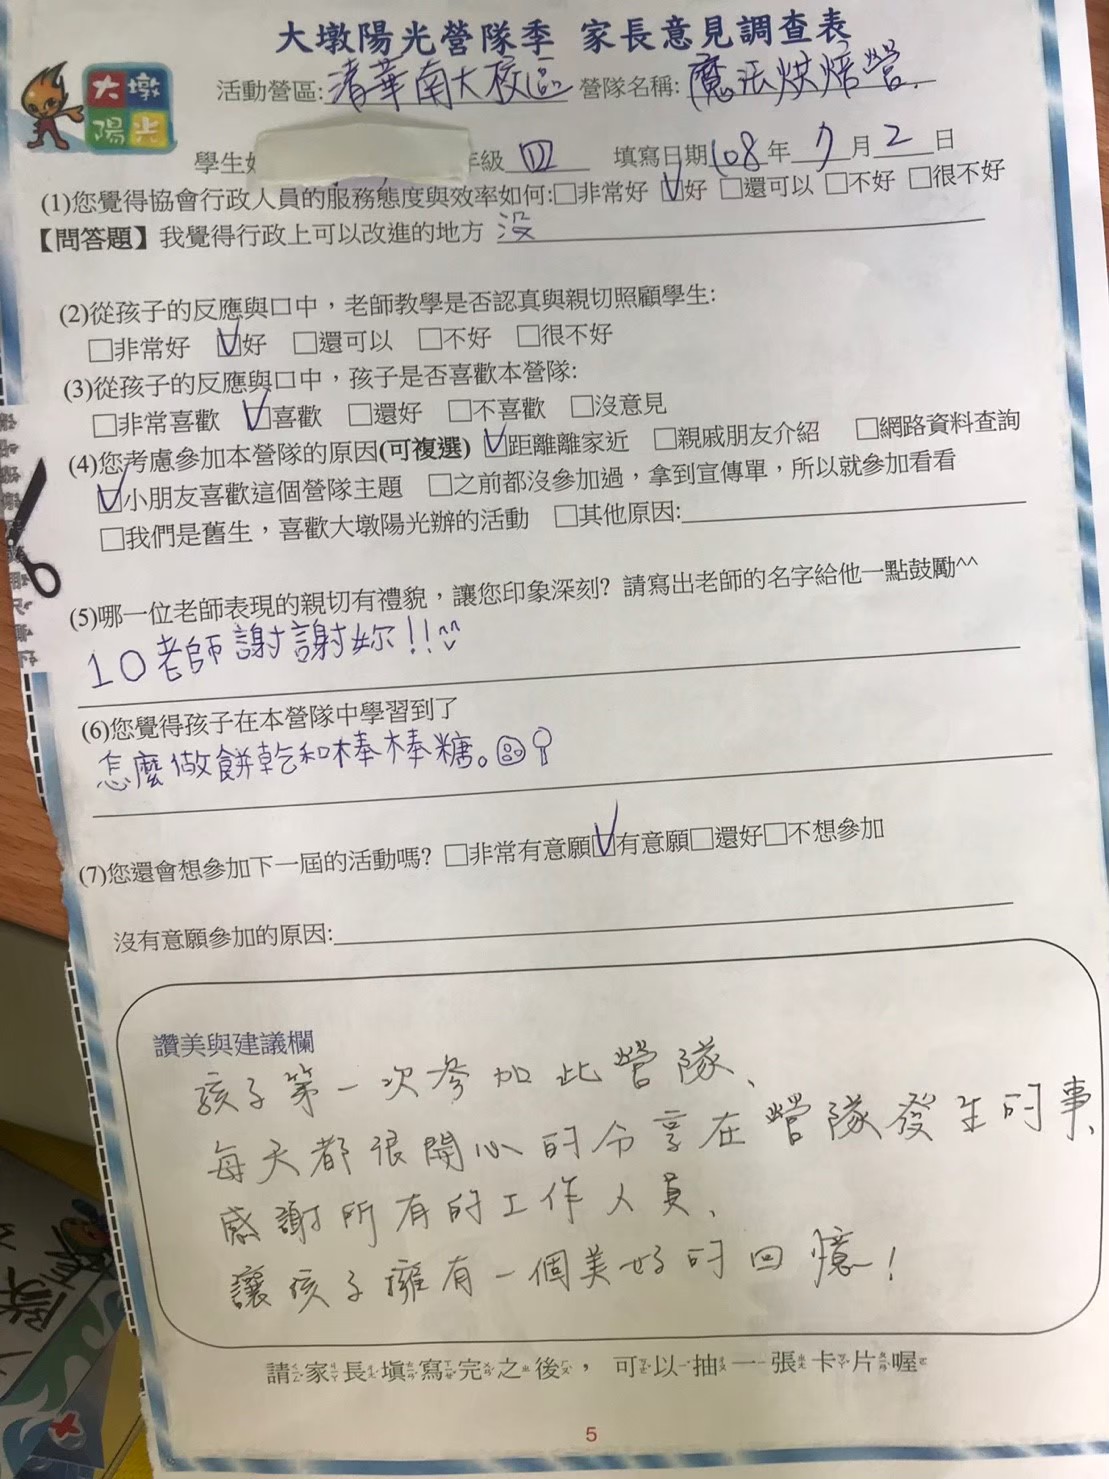 大墩陽光營隊季 家長意見調查表
大墩
陽光
活動營區:清華南大校區 營隊名稱:魔法烘焙營.
學生 年級 四 填寫日期108年7月2日
(1)您覺得協會行政人員的服務態度與效率如何:□非常好 ☑好 □還可以 □不好 □很不好
【問答題】我覺得行政上可以改進的地方 沒
(2)從孩子的反應與口中，老師教學是否認真與親切照顧學生:
□非常好 ☑好 □還可以 □不好 □很不好
(3)從孩子的反應與口中，孩子是否喜歡本營隊:
□非常喜歡 ☑喜歡 □還好 □不喜歡 □沒意見
(4)您考慮參加本營隊的原因(可複選) ☑距離離家近 □親戚朋友介紹 □網路資料查詢
☑小朋友喜歡這個營隊主題 □之前都沒參加過，拿到宣傳單，所以就參加看看
□我們是舊生，喜歡大墩陽光辦的活動 □其他原因:
(5)哪一位老師表現的親切有禮貌，讓您印象深刻? 請寫出老師的名字給他一點鼓勵^^
10老師謝謝妳!!^^
(6)您覺得孩子在本營隊中學習到了
怎麼做餅乾和棒棒糖。
(7)您還會想參加下一屆的活動嗎? □非常有意願☑有意願□還好□不想參加
沒有意願參加的原因:
讚美與建議欄
孩子第一次參加此營隊、
每天都很開心的分享在營隊發生的事、
感謝所有的工作人員、
讓孩子擁有一個美好的回憶!
請家長填寫完之後，可以抽一張卡片喔
5